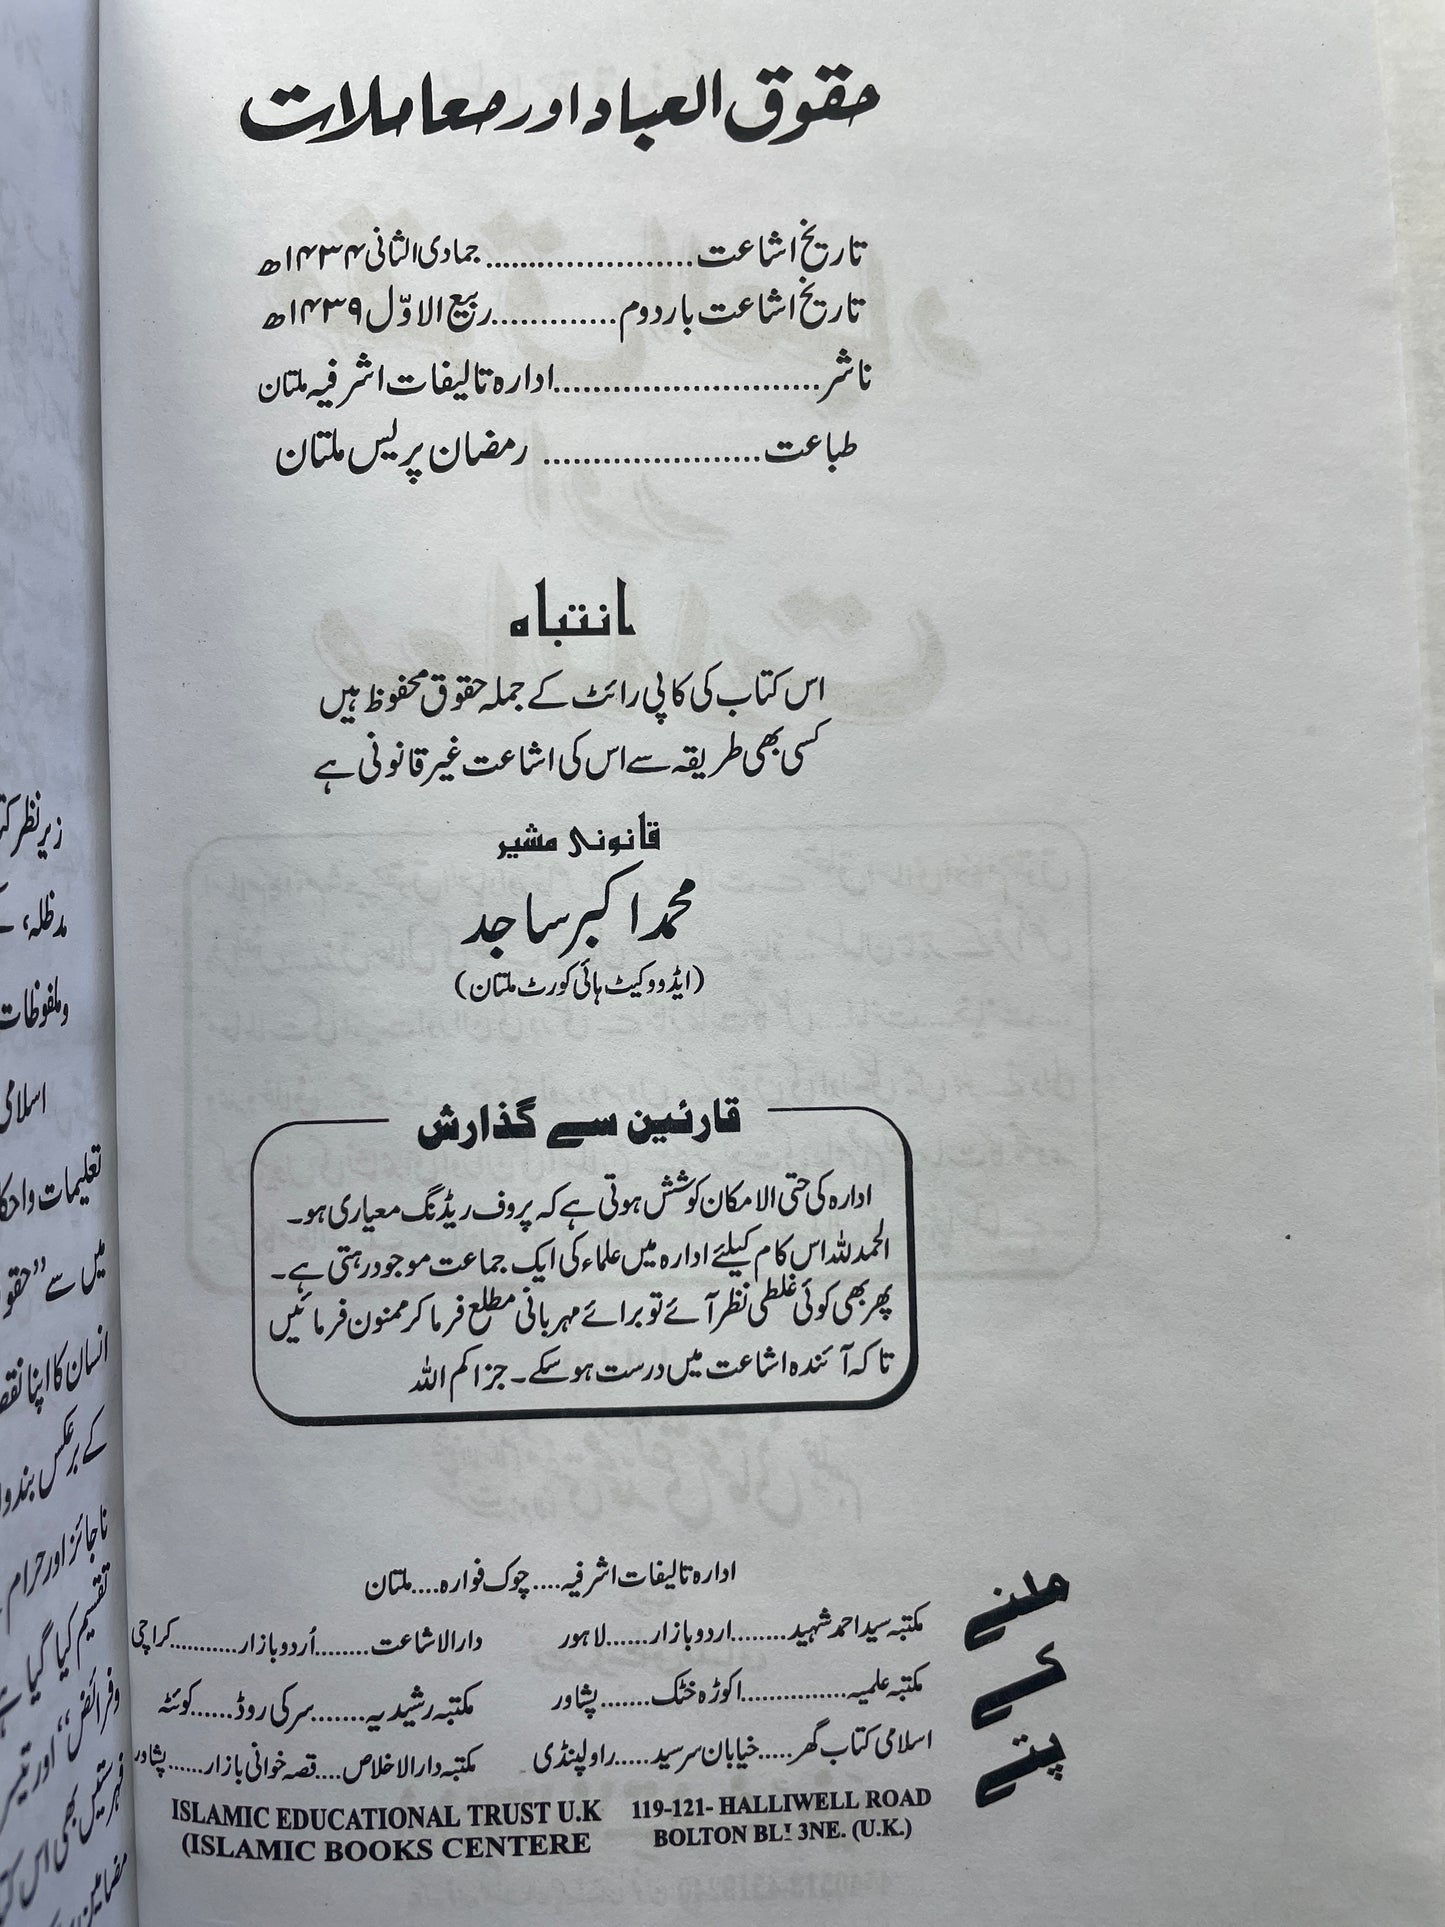 حقوق العباد اور معاملات
تاریخ اشاعت........................جمادی الثانی ۱۴۳۴ھ
تاریخ اشاعت بار دوم..............ربیع الاوّل ۱۴۳۹ھ
ناشر............................ادارہ تالیفات اشرفیہ ملتان
طباعت...................... رمضان پریس ملتان
انتباہ
اس کتاب کی کاپی رائٹ کے جملہ حقوق محفوظ ہیں
کسی بھی طریقہ سے اس کی اشاعت غیر قانونی ہے
قانونی مشیر
محمد اکبر ساجد
(ایڈووکیٹ ہائی کورٹ ملتان)
قارئین سے گذارش
ادارہ کی حتی الامکان کوشش ہوتی ہے کہ پروف ریڈنگ معیاری ہو۔
الحمدللہ اس کام کیلئے ادارہ میں علماء کی ایک جماعت موجود رہتی ہے۔
پھر بھی کوئی غلطی نظر آئے تو برائے مہربانی مطلع فرما کر ممنون فرمائیں
تاکہ آئندہ اشاعت میں درست ہو سکے۔ جزاکم اللہ
ملنے کے پتے
ادارہ تالیفات اشرفیہ....چوک فوارہ....ملتان
مکتبہ سید احمد شہید........اردو بازار......لاہور
دارالاشاعت........اُردو بازار...........کراچی
مکتبہ علمیہ................اکوڑہ خٹک.......پشاور
مکتبہ رشیدیہ.......سرکی روڈ......کوئٹہ
اسلامی کتاب گھر.....خیابان سرسید.....راولپنڈی
مکتبہ دارالاخلاص....قصہ خوانی بازار......پشاور
ISLAMIC EDUCATIONAL TRUST U.K 119-121- HALLIWELL ROAD
(ISLAMIC BOOKS CENTERE BOLTON BL! 3NE. (U.K.)
زیر نظر
مدظلہ،
وملفوظات
اسلامی
تعلیمات و
میں سے "
انسان کا اپنا
کے برعکس
ناجائز اور حرام
تقسیم کیا گیا
وفرائض" اور
فہرستیں بھی اس